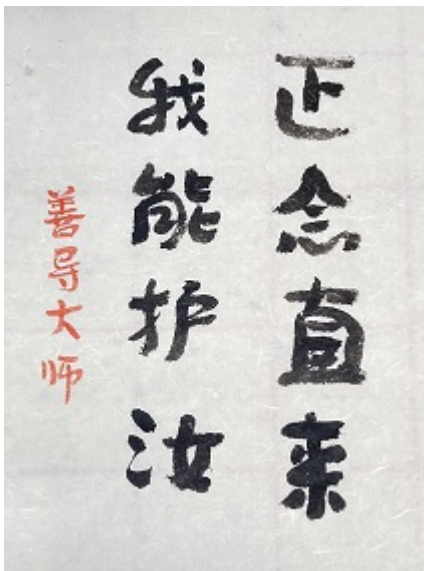 正念直来
我能护汝
善导大师